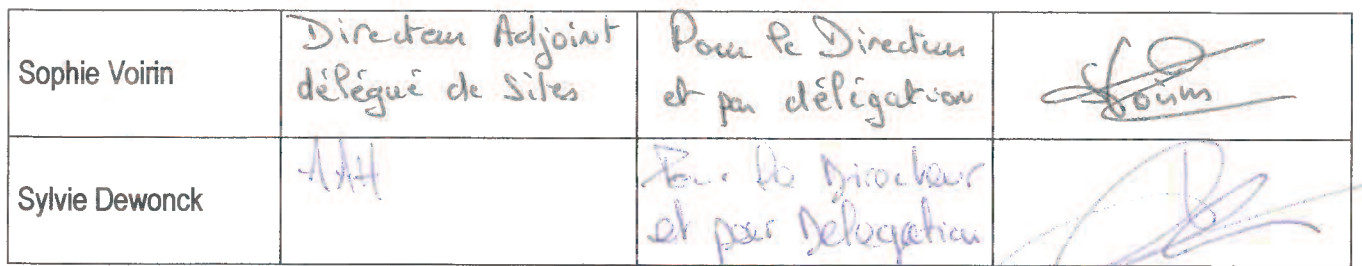 Sophie Voirin
Directeur Adjoint
délégué de Sites
Pour le Directeur
et par délégation
Voirin
Sylvie Dewonck
AAH
Pour le Directeur
et par Délégation